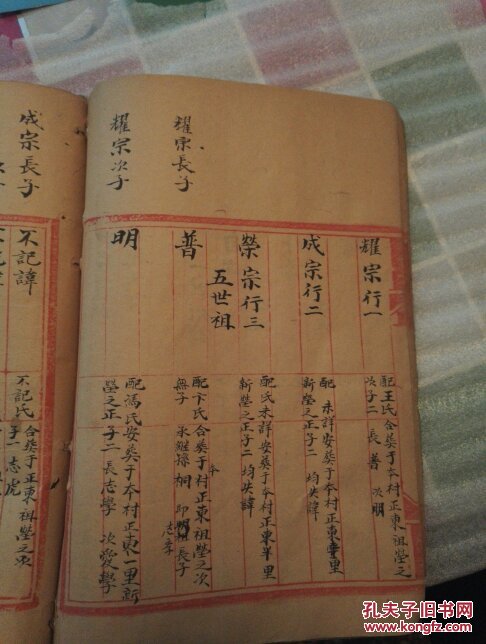 耀宗行一
配王氏合葬于本村正東祖塋之
次子二 長普 次明
成宗行二
配未詳安葬于本村正東半里
新塋之正子二 均失諱
榮宗行三
配氏未詳安葬于本村正東半里
新塋之正子二 均失諱
五世祖
耀宗長子
普
配卞氏合葬于本村正東祖塋之次
無子 承繼 桐 即明祖長子
志李
耀宗次子
明
配馮氏安葬于本村正東一里新
塋之正子二 長志學 次愛學
成宗長子
不記諱
不記氏合葬于正東祖塋之次
子一 志虎
孔夫子旧书网